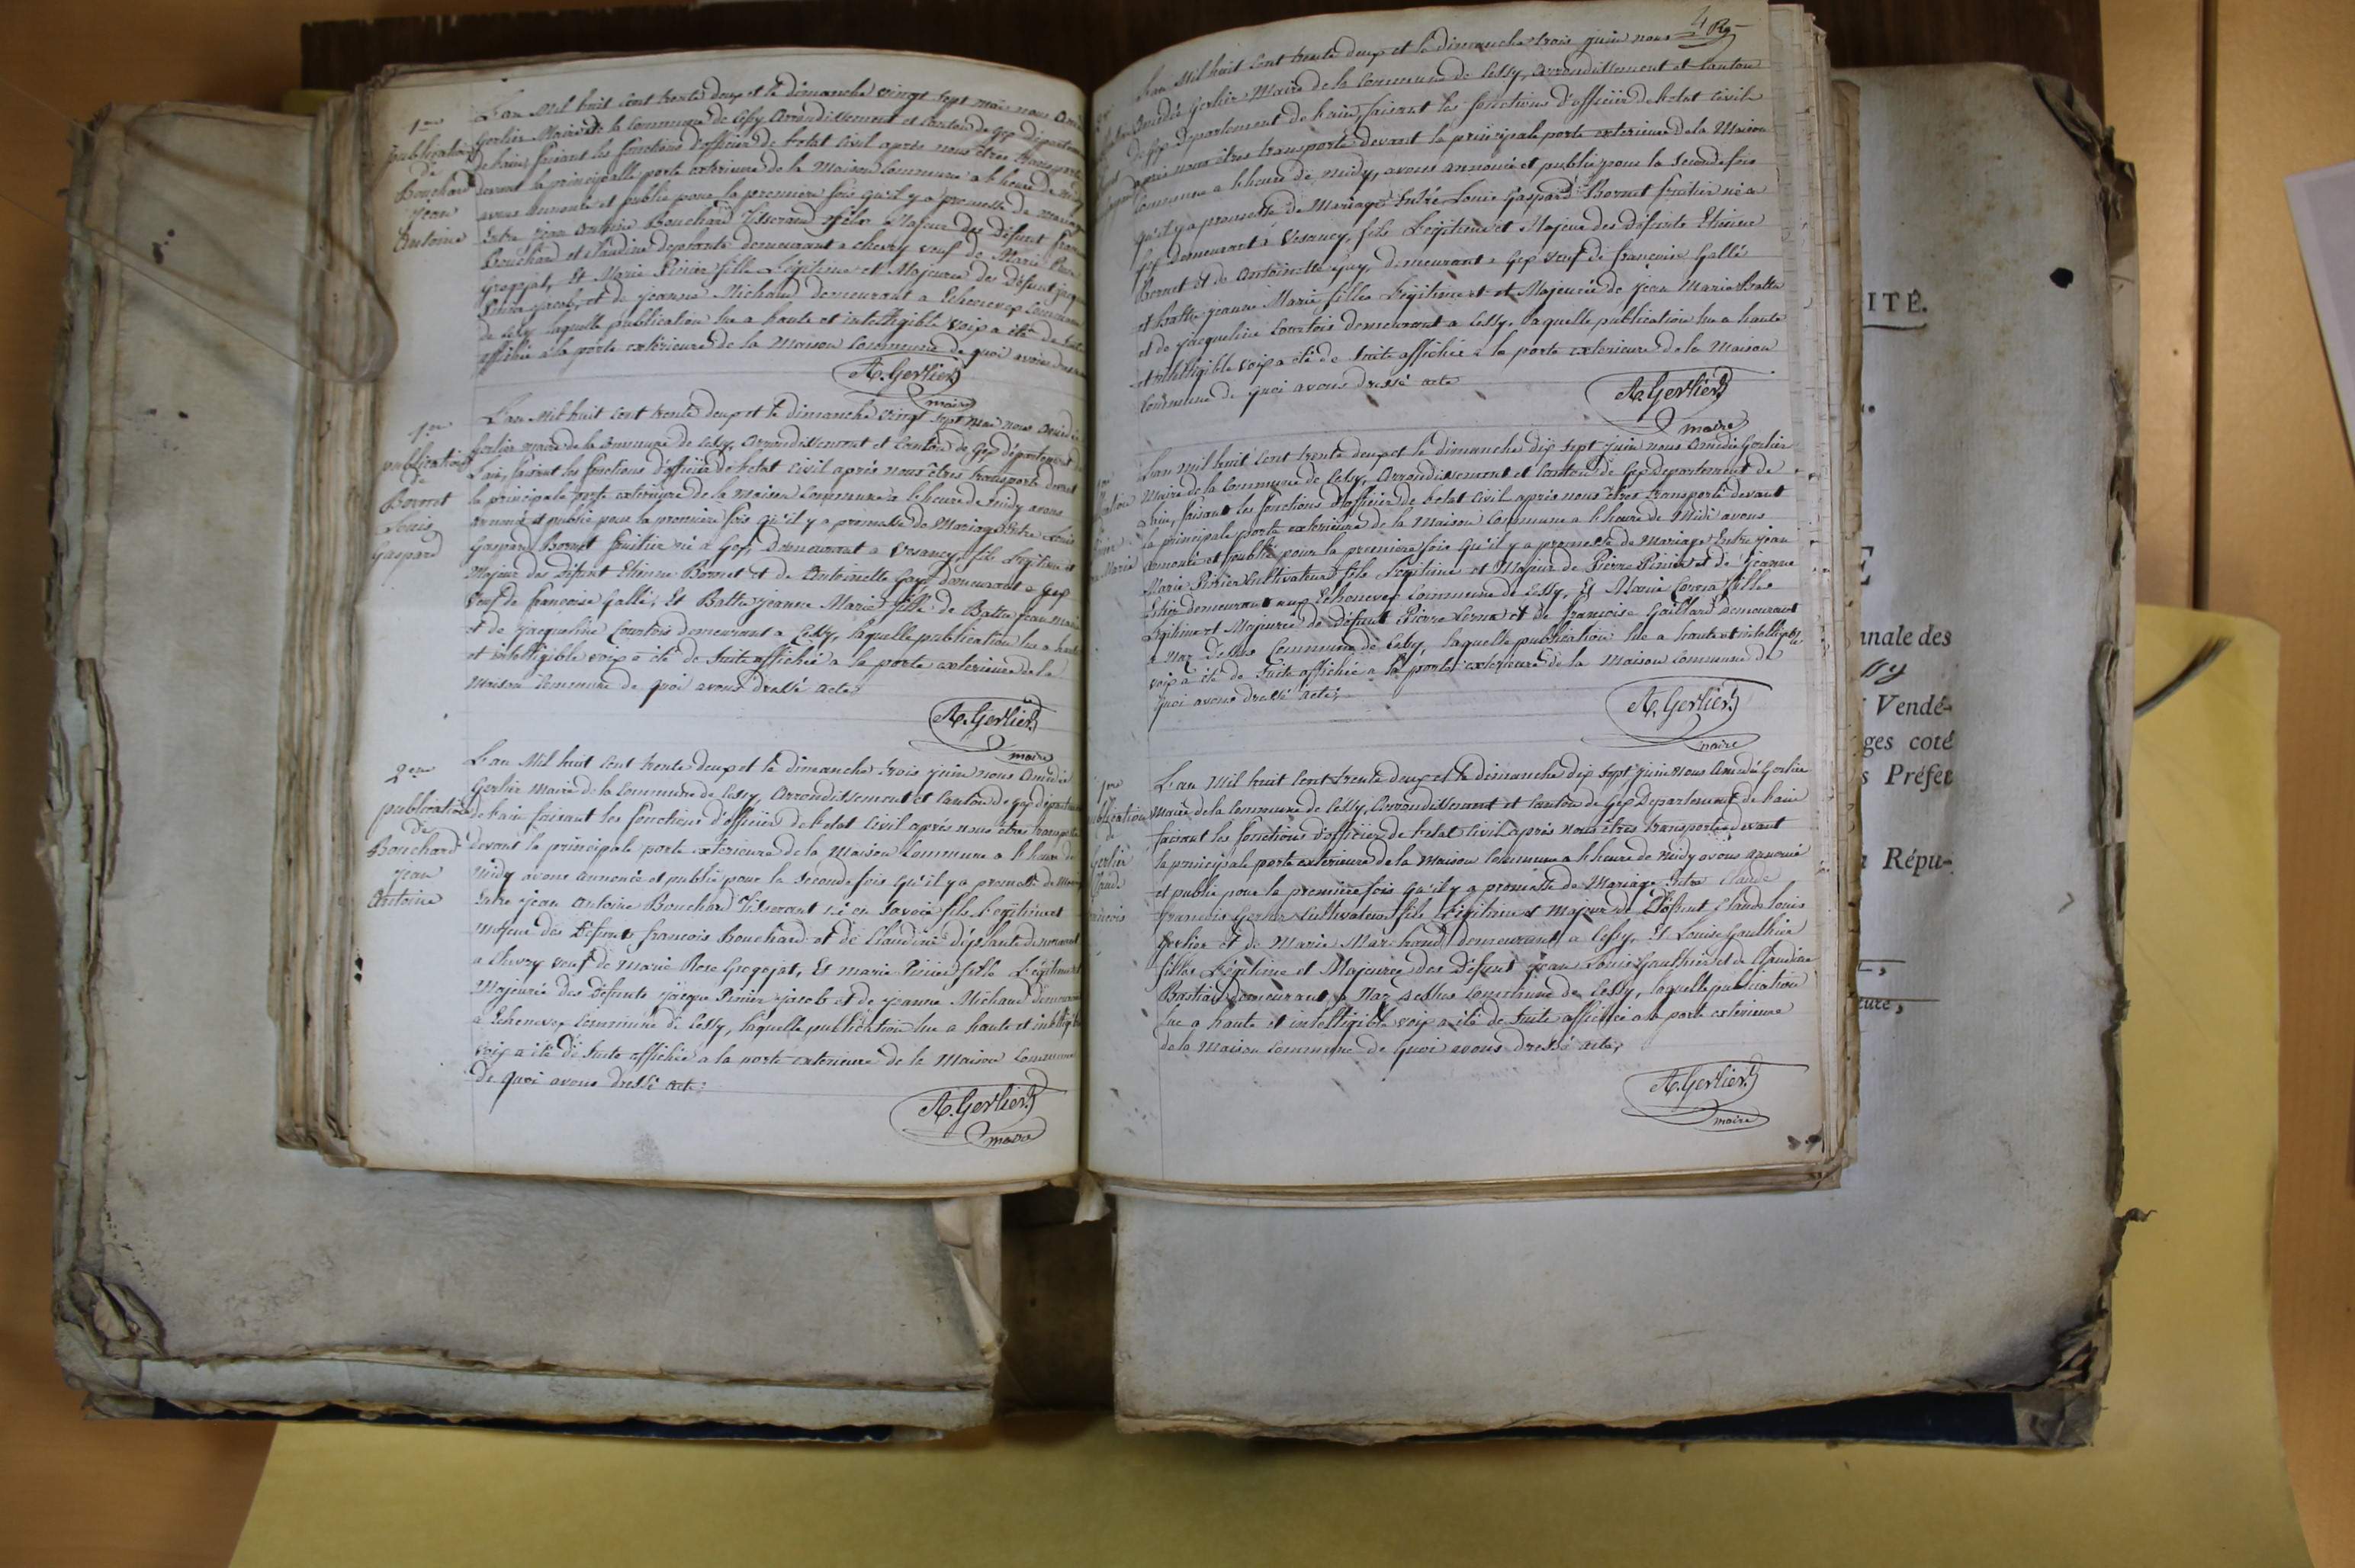 1ere
publication
de
Bouchard
jean
Antoine
L'an Mil huit cent trente deux et le dimanche vingt sept mai nous
Gerlier Maire de la Commune de Cessy arrondissement et Canton de Gex département
de l'ain, faisant les fonctions d'officier de l'etat Civil après nous êtres transporté
devant la principalle porte exterieure de la Maison Commune a l'heure de midy
avons annoncé et publié pour la premiere fois qu'il y a promesse de mariage
Entre jean antoine Bouchard Tisserand fils Majeur des défunt
Bouchard et Claudine deplante demeurant a chevry veuf de Marie Rose
Grogojat, Et Marie Pinier fille Légitime et Majeure des Défunt jacque
Pinier jacob, et de jeanne Michaud demeurant a Echenevex Commune
de Cessy laquelle publication lue a haute et intelligible voix a été de suite
affiché a la porte extérieure de la maison Commune de quoi avons
A. Gerlier
maire
1ere
publication
de
Bornet
Louis
Gaspard
L'an Mil huit cent trente deux et le dimanche vingt sept mai nous amédé
Gerlier maire de la Commune de Cessy, arrondissement et Canton de Gex département de
L'ain, faisant les fonctions d'officier de l'etat civil après nous êtres transporté devant
la principale porte exterieure de la maison Commune a l'heure de midy avons
annoncé et publié pour la premiere fois qu'il y a promesse de Mariage Entre Louis
Gaspard Bornet fruitier né a Gex, demeurant a Vesancy, fils Légitime et
Majeur des Défunt Etienne Bornet et de Antoinette Guy demeurant a Gex
Veuf de francoise Gallé, Et Batta jeanne Marie fille de Batta jean marie
et de jacqueline Courtois demeurant a Cessy, laquelle publication lue a haute
et intelligible voix a été de suite affichée a la porte exterieure de la
Maison Commune de quoi avons dressé acte
A. Gerlier
maire
2eme
publication
de
Bouchard
jean
Antoine
L'an Mil huit cent trente deux et le dimanche trois juin nous amédé
Gerlier maire de la Commune de Cessy, arrondissement et Canton de gex département
de l'ain faisant les fonctions d'officier de l'etat Civil après nous êtres transporté
devant la principale porte exterieure de la Maison Commune a l'heure de
midy avons annoncé et publié pour la seconde fois qu'il y a promesse de
Entre jean antoine Bouchard Tisserant né en Savoie fils Légitime et
majeur des Défunts francois Bouchard et de Claudine déplante demeurant
a Chevry veuf de Marie Rose Grogojat, Et marie Pinier fille Légitime et
Majeurie des Défunts jacque Pinier jacob et de jeanne Michaud demeurant
a Echenevex Commune de Cessy, laquelle publication lue a haute et intelligible
voix a été de suite affichée a la porte exterieure de la Maison Commune
de quoi avons dressé acte
A. Gerlier
maire
4
L'an Mil huit Cent trente deux et le dimanche trois juin nous
Amédé Gerlier Maire de la Commune de Cessy, arrondissement et Canton
de Gex Departement de l'ain, faisant les fonctions d'officier de l'etat Civil
après nous êtres transporté devant la principale porte exterieure de la Maison
Commune a l'heure de midy, avons annoncé et publié pour la seconde fois
qu'il y a promesse de Mariage Entre Louis Gaspard Bornet fruitier né a
Gex demeurant a Vesancy, fils Légitime et Majeur des défunts Etienne
Bornet et de Antoinette Guy, demeurant a Gex veuf de francoise Gallé
et Batta jeanne Marie filles Légitime et Majeurie de jean Marie Batta
et de jacqueline Courtois demeurant a Cessy, laquelle publication lue a haute
et intelligible voix a été de suite affichée a la porte exterieure de la Maison
Commune de quoi avons dressé acte
A. Gerlier
maire
Marie
L'an Mil huit Cent trente deux et le dimanche dix sept juin nous amédé Gerlier
Maire de la Commune de Cessy, arrondissement et Canton de Gex Departement de
l'ain, faisant les fonctions d'officier de l'etat civil après nous êtres transporté devant
la principale porte exterieure de la maison Commune a l'heure de Midi avons
annoncé et publié pour la première fois qu'il y a promesse de Mariage Entre jean
Marie Pinier Cultivateur fils Légitime et Majeur de Pierre Pinier et de jeanne
demeurant aux Echenevex Commune de Cessy, Et Marie fille
Légitime et Majeure de défunt Pierre et de francoise Gaillard demeurant
a Naz dessus Commune de Cessy, laquelle publication lue a haute et intelligible
voix a été de suite affichée a la porte exterieure de la Maison Commune de
quoi avons dressé acte;
A. Gerlier
maire
1ere
publication
de
Gerlier
Claude
francois
L'an Mil huit Cent trente deux et le dimanche dix sept juin nous Amédé Gerlier
Maire de la Commune de Cessy, Arrondissement et Canton de Gex Departement de l'ain
faisant les fonctions d'officier de l'etat Civil après nous êtres transporté devant
la principale porte exterieure de la Maison Commune a l'heure de midy avons annoncé
et publié pour la première fois qu'il y a promesse de Mariage Entre Claude
francois Gerlier Cultivateur fils Légitime et Majeur de Défunt Claude Louis
Gerlier et de Marie Marchand demeurant a Cessy, Et Louise Gaulthier
fille Légitime et Majeure des Défunt jean Louis Gaulthier et de Claudine
Bastian demeurant a Naz dessus Commune de Cessy, laquelle publication
lue a haute et intelligible voix a été de suite affichée a la porte extérieure
de la Maison Commune de Quoi avons dressé acte;
A. Gerlier
maire
ITÉ.
nnale des
Vendé-
ges coté
s Préfet
Répu-